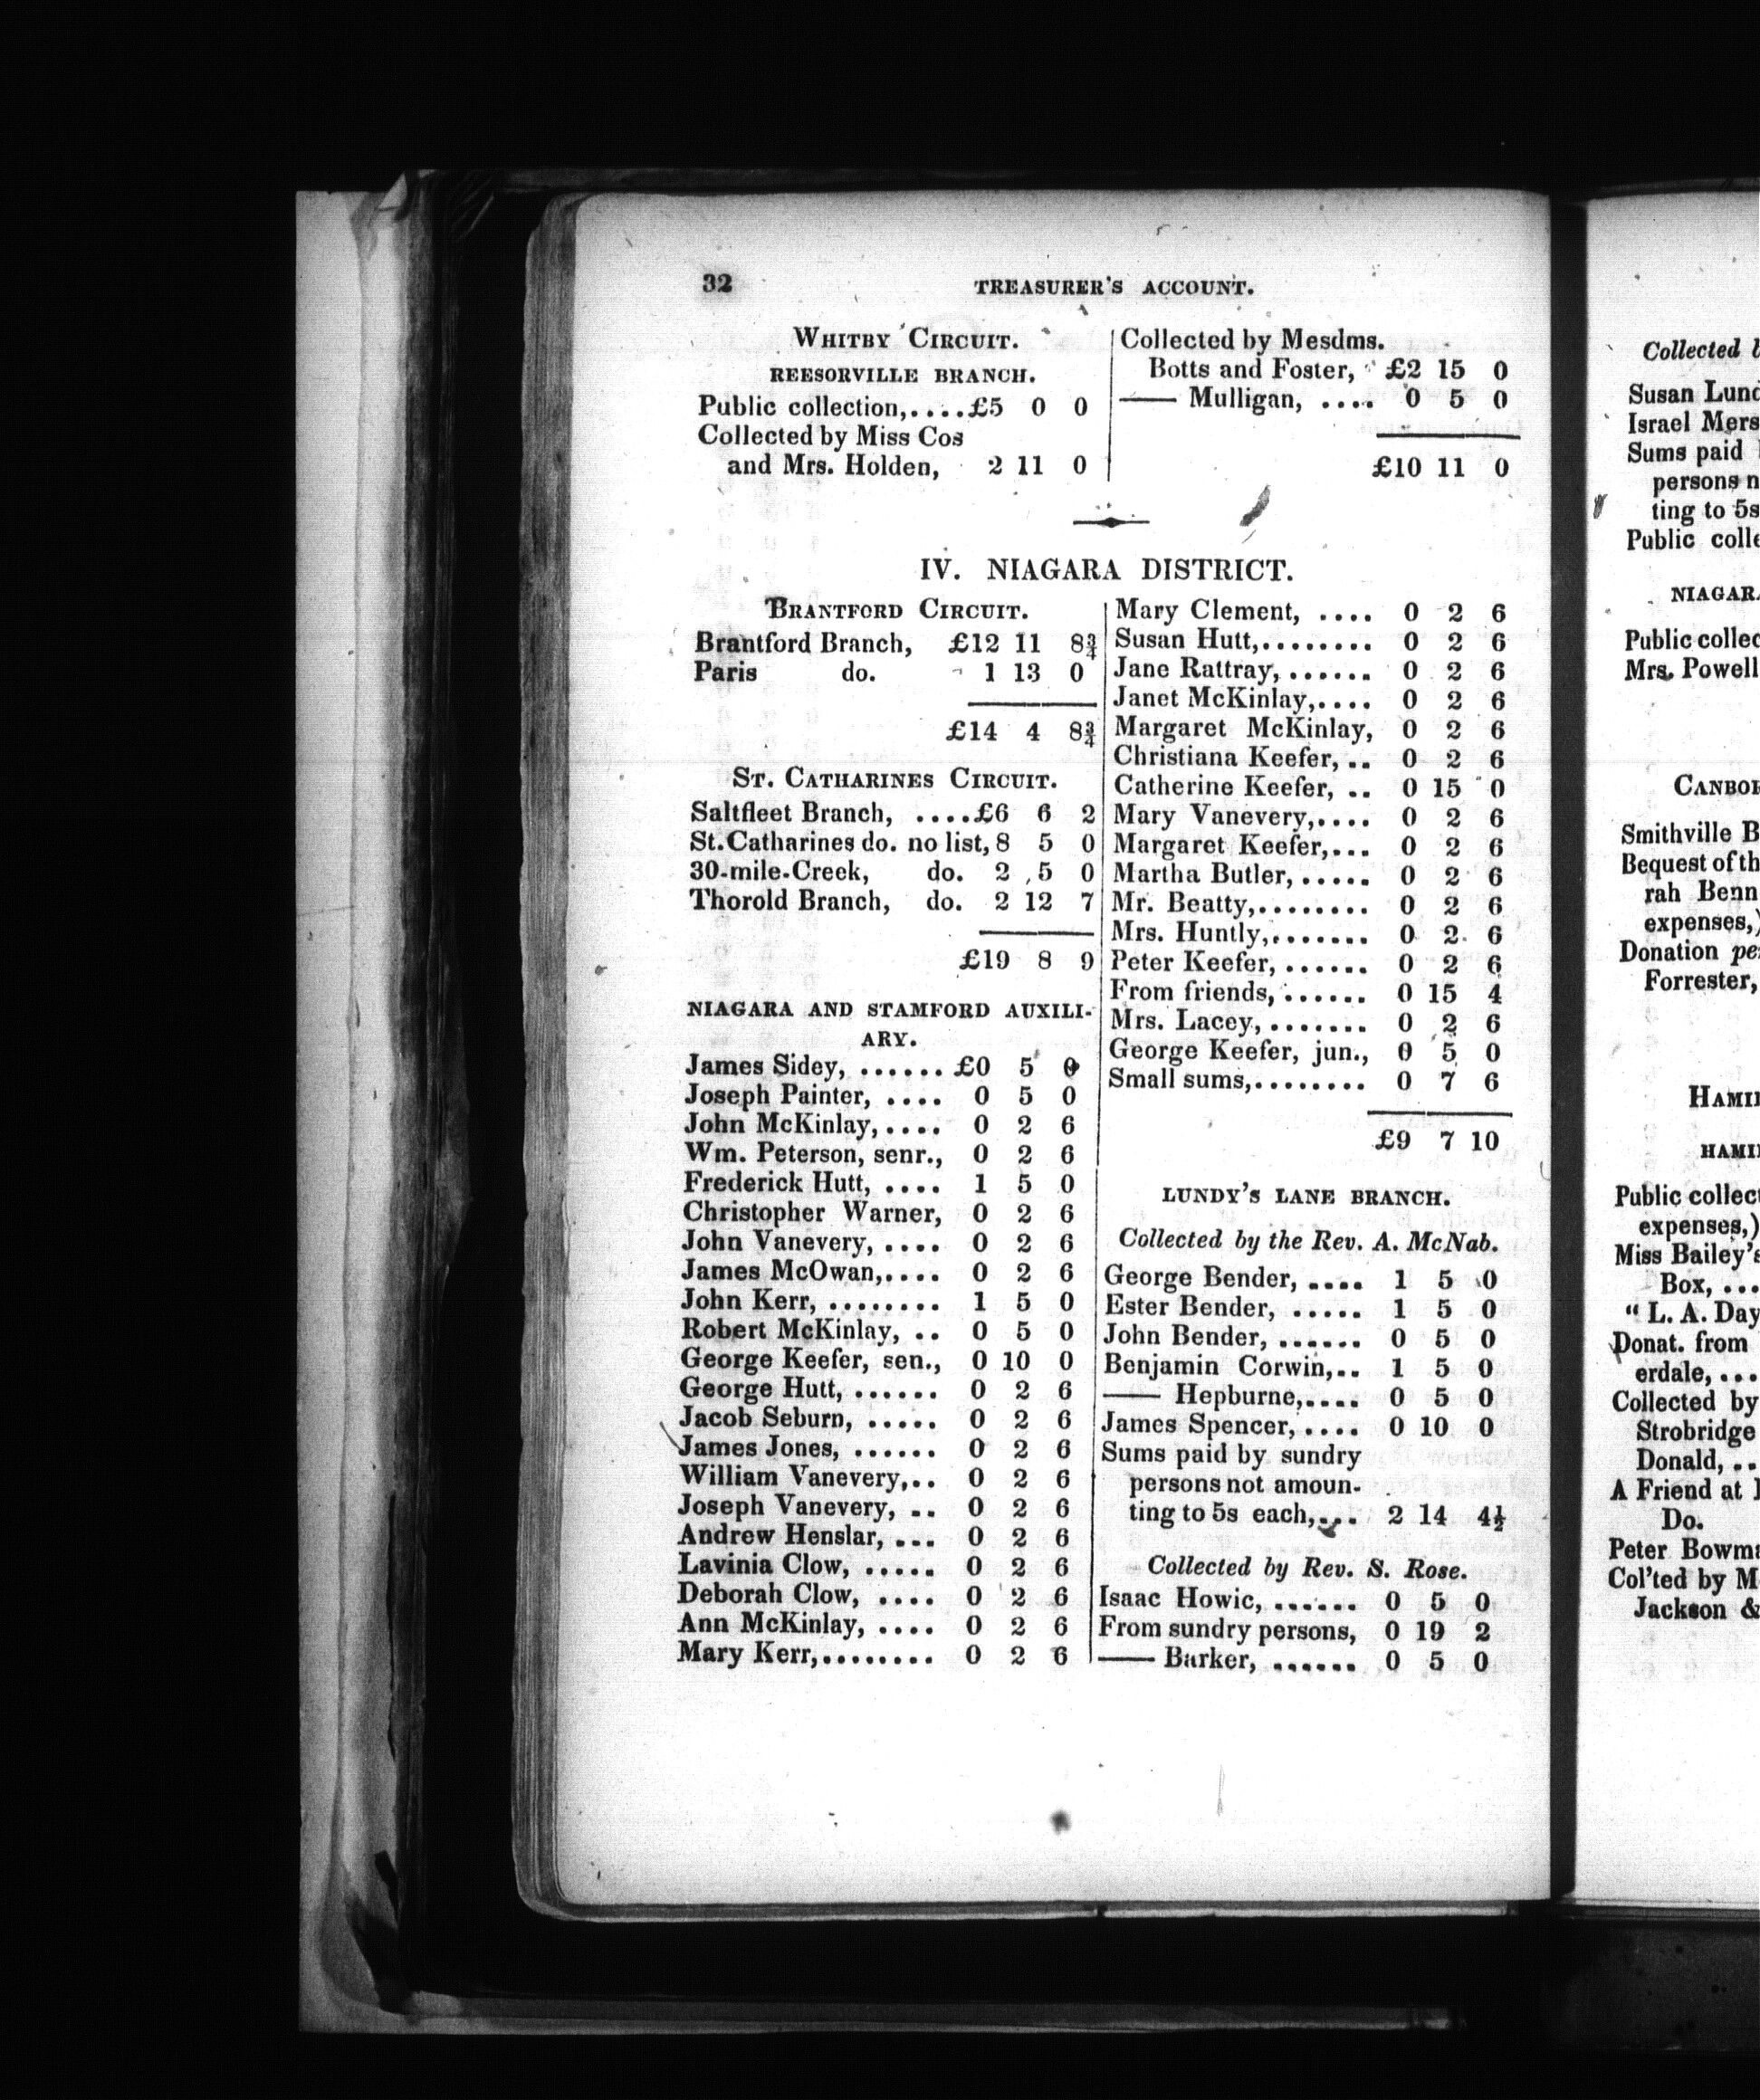 32 TREASURER'S ACCOUNT.
WHITBY CIRCUIT.
REESORVILLE BRANCH.
Public collection,....£5 0 0
Collected by Miss Cos
and Mrs. Holden, 2 11 0
Collected by Mesdms.
Botts and Foster, £2 15 0
—— Mulligan, .... 0 5 0
£10 11 0
IV. NIAGARA DISTRICT.
BRANTFORD CIRCUIT.
Brantford Branch, £12 11 8¾
Paris do. 1 13 0
£14 4 8¾
ST. CATHARINES CIRCUIT.
Saltfleet Branch, ....£6 6 2
St.Catharines do. no list, 8 5 0
30-mile-Creek, do. 2 5 0
Thorold Branch, do. 2 12 7
£19 8 9
NIAGARA AND STAMFORD AUXILI-
ARY.
James Sidey, ...... £0 5 0
Joseph Painter, .... 0 5 0
John McKinlay,.... 0 2 6
Wm. Peterson, senr., 0 2 6
Frederick Hutt, .... 1 5 0
Christopher Warner, 0 2 6
John Vanevery, .... 0 2 6
James McOwan,.... 0 2 6
John Kerr, ........ 1 5 0
Robert McKinlay, .. 0 5 0
George Keefer, sen., 0 10 0
George Hutt, ...... 0 2 6
Jacob Seburn, ..... 0 2 6
James Jones, ...... 0 2 6
William Vanevery,.. 0 2 6
Joseph Vanevery, .. 0 2 6
Andrew Henslar, ... 0 2 6
Lavinia Clow, ..... 0 2 6
Deborah Clow, .... 0 2 6
Ann McKinlay, .... 0 2 6
Mary Kerr,........ 0 2 6
Mary Clement, .... 0 2 6
Susan Hutt,........ 0 2 6
Jane Rattray, ...... 0 2 6
Janet McKinlay,.... 0 2 6
Margaret McKinlay, 0 2 6
Christiana Keefer, .. 0 2 6
Catherine Keefer, .. 0 15 0
Mary Vanevery,.... 0 2 6
Margaret Keefer,... 0 2 6
Martha Butler, ..... 0 2 6
Mr. Beatty,........ 0 2 6
Mrs. Huntly,....... 0 2 6
Peter Keefer, ...... 0 2 6
From friends, ...... 0 15 4
Mrs. Lacey, ....... 0 2 6
George Keefer, jun., 0 5 0
Small sums,........ 0 7 6
£9 7 10
LUNDY'S LANE BRANCH.
Collected by the Rev. A. McNab.
George Bender, .... 1 5 0
Ester Bender, ..... 1 5 0
John Bender, ...... 0 5 0
Benjamin Corwin,.. 1 5 0
—— Hepburne,.... 0 5 0
James Spencer, .... 0 10 0
Sums paid by sundry
persons not amoun-
ting to 5s each,... 2 14 4½
Collected by Rev. S. Rose.
Isaac Howic, ...... 0 5 0
From sundry persons, 0 19 2
—— Barker, ...... 0 5 0
Collected
Susan
Israel
Sums paid
persons
ting to 5s
Public
Public
Mrs. Powell
Smithville
Bequest of
rah
expenses,)
Donation
Forrester,
Public
expenses,)
Miss Bailey's
Box, ...
" L. A. Day
Donat. from
erdale, ...
Collected by
Strobridge
Donald, ..
A Friend at
Do.
Peter
Col'ted by
Jackson &